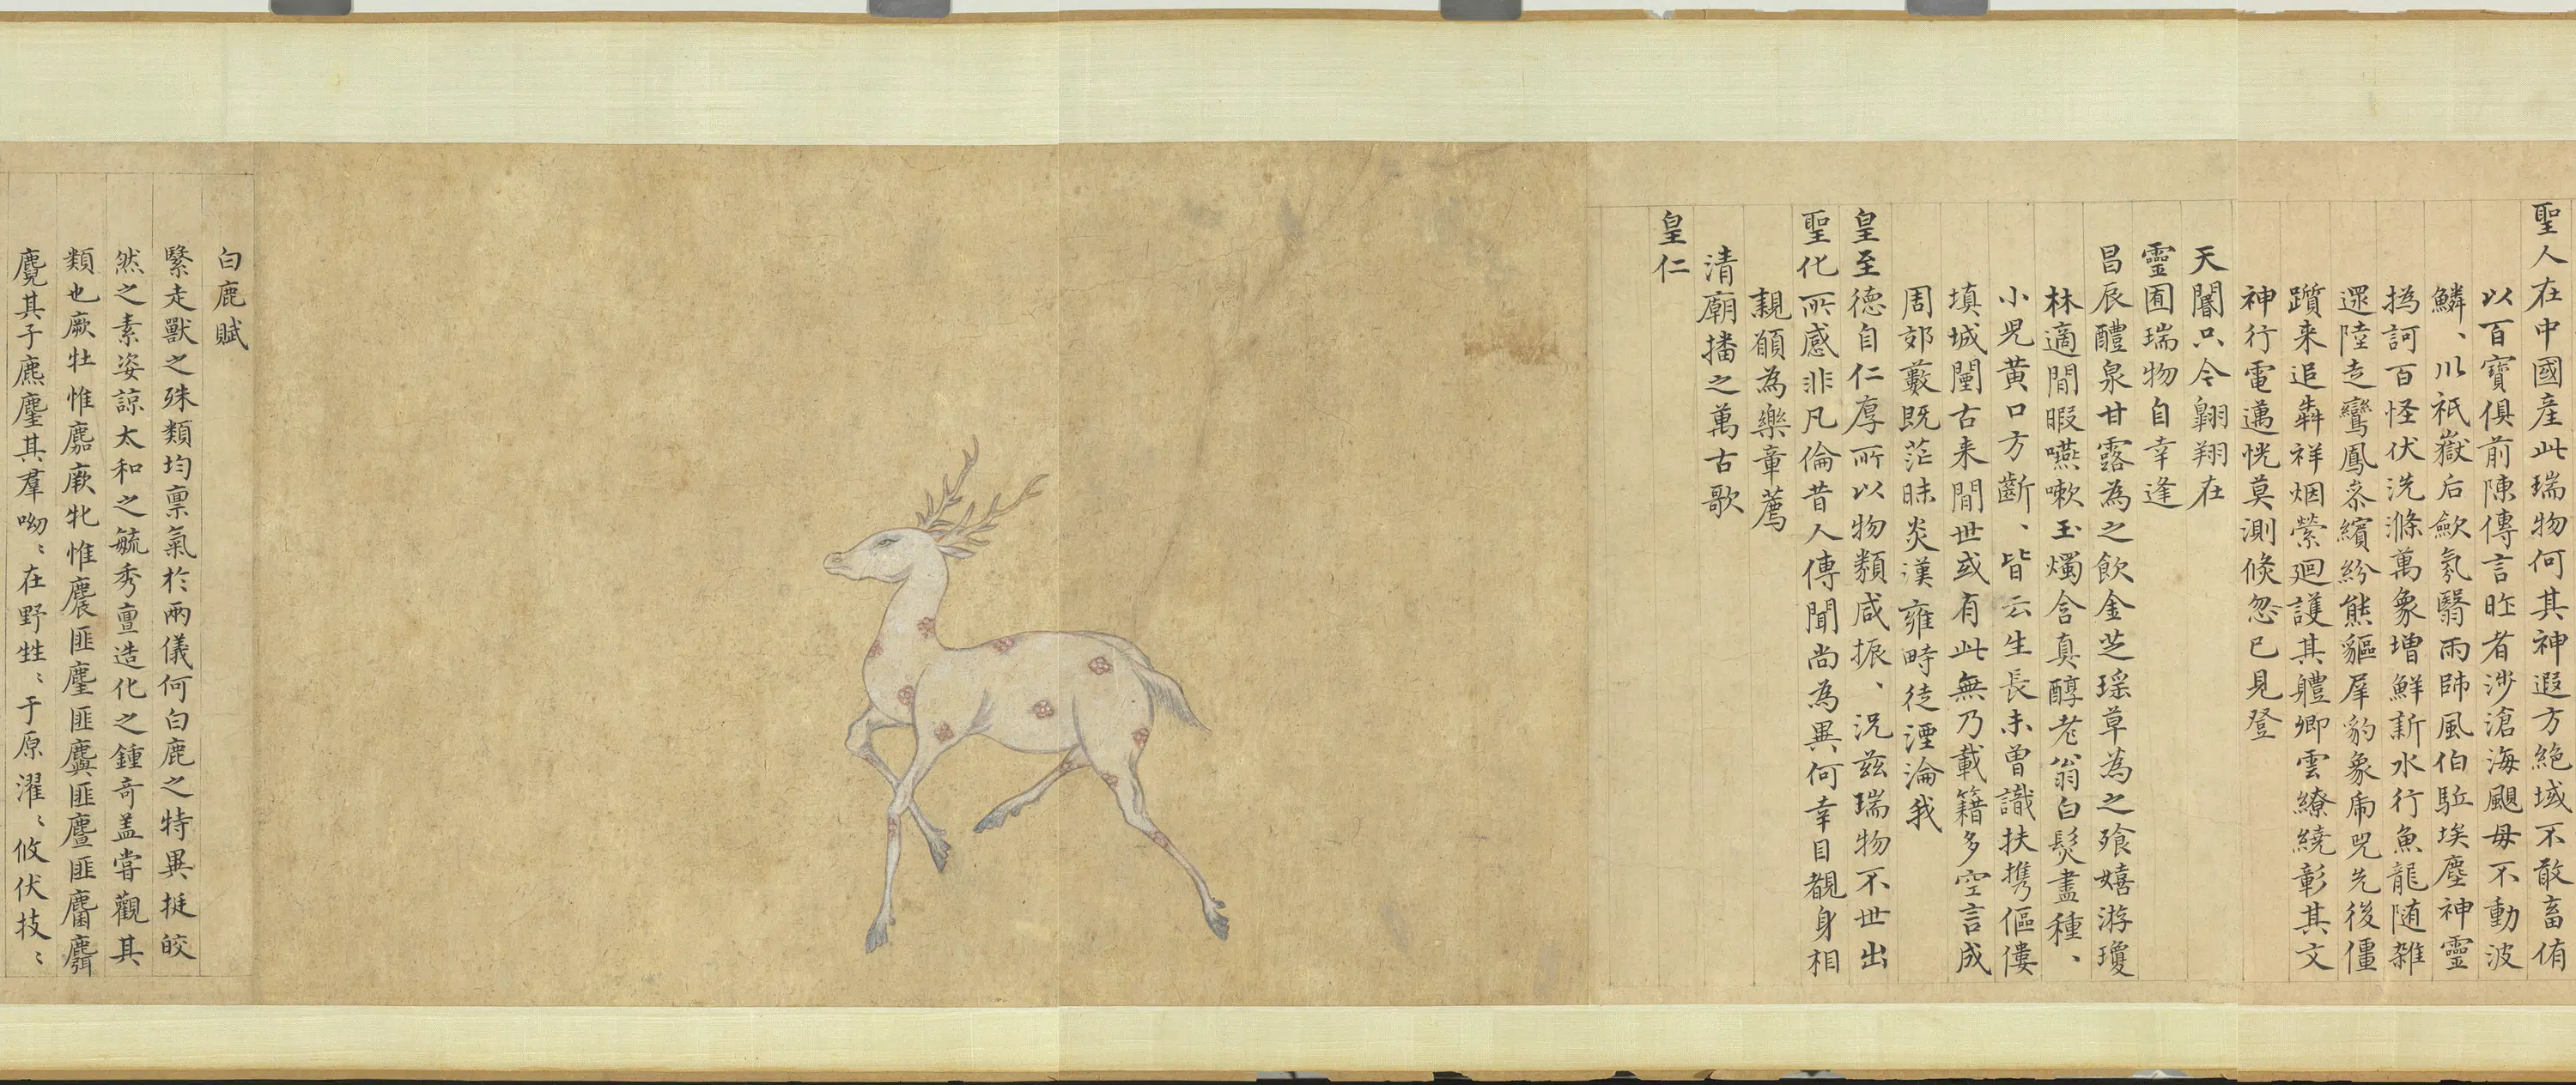 聖人在中國産此瑞物何其神遐方絶域不敢畜侑
以百寶俱前陳傳言昨者涉滄海颶母不動波
鱗、川祇嶽后歛氛翳雨師風伯駈埃塵神靈
撝訶百怪伏洗滌萬象増鮮新水行魚龍随雜
遝陸走鸞鳳叅繽紛熊貙犀豹象兕先後僵
躓来追犇祥烟縈迴護其軆卿雲繚繞彰其文
神行電邁恍莫測倏忽已見登
天閽只今翺翔在
靈囿瑞物自幸逢
昌辰醴泉甘露為之飲金芝瑶草為之飱嬉游瓊
林適閒暇嚥嗽玉燭含真醇老翁白髮盡種、
小兒黄口方齗、皆云生長未曽識扶携傴僂
填城闉古来閒世或有此無乃載籍多空言成
周郊藪既茫昧炎漢雍畤徒湮淪我
皇至徳自仁厚所以物類咸振、況兹瑞物不世出
聖化所感非凡倫昔人傳聞尚為異何幸目覩身相
親願為樂章薦
清廟播之萬古歌
皇仁
白鹿賦
緊走獸之殊類均禀氣於兩儀何白鹿之特異挺皎
然之素姿諒太和之毓秀亶造化之鍾奇盖嘗觀其
類也厥牡惟麚厥牝惟麎匪麈匪麌匪麆匪麕
麑其子麃麈其羣呦〻在野甡〻于原濯〻攸伏技〻